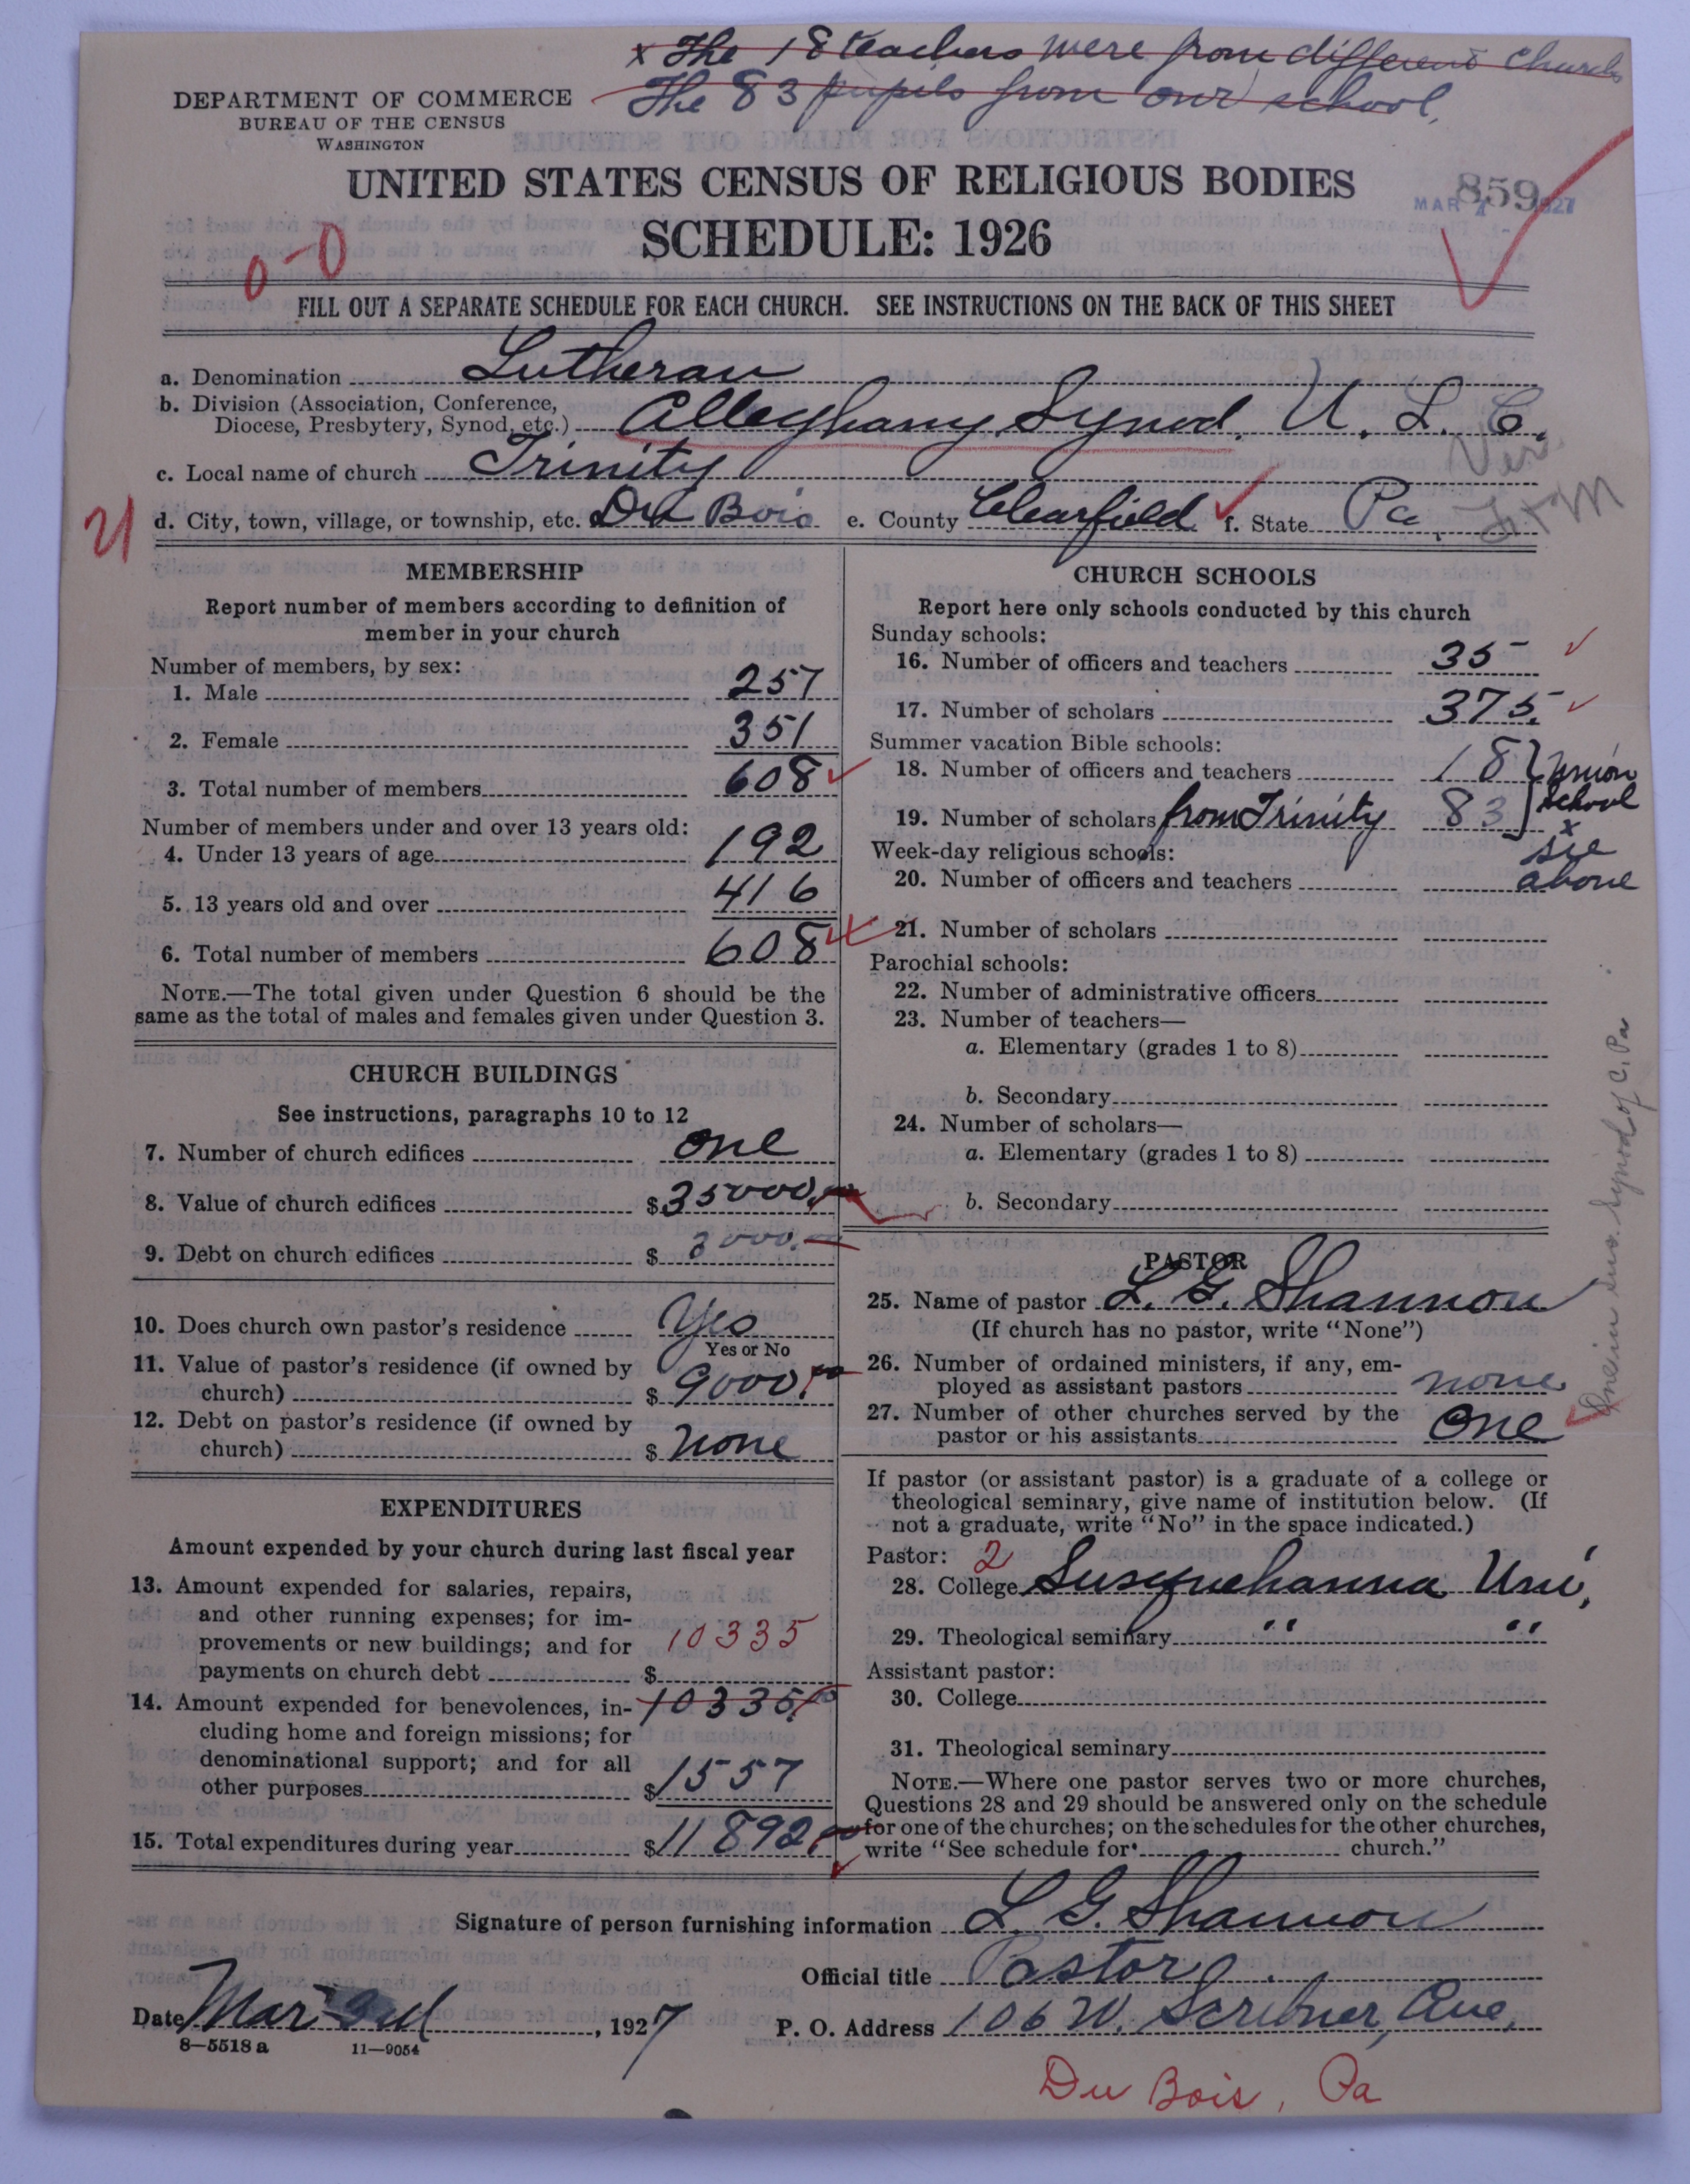 x The 18 teachers were from different Church
The 83 pupils from our school.
DEPARTMENT OF COMMERCE
BUREAU OF THE CENSUS
WASHINGTON
UNITED STATES CENSUS OF RELIGIOUS BODIES
SCHEDULE: 1926
859
MAR 1927
0-0
FILL OUT A SEPARATE SCHEDULE FOR EACH CHURCH. SEE INSTRUCTIONS ON THE BACK OF THIS SHEET
a. Denomination Lutheran
b. Division (Association, Conference,
Diocese, Presbytery, Synod, etc.) Alleghany Synod, U. L. C.
c. Local name of church Trinity
d. City, town, village, or township, etc. Du Bois e. County Clearfield f. State Pa.
21
MEMBERSHIP
Report number of members according to definition of
member in your church
Number of members, by sex:
1. Male 257
2. Female 351
3. Total number of members 608
Number of members under and over 13 years old:
4. Under 13 years of age 192
5. 13 years old and over 416
6. Total number of members 608
NOTE.—The total given under Question 6 should be the
same as the total of males and females given under Question 3.
CHURCH BUILDINGS
See instructions, paragraphs 10 to 12
7. Number of church edifices one
8. Value of church edifices $35000.
9. Debt on church edifices $ 3000.
10. Does church own pastor's residence Yes
Yes or No
11. Value of pastor's residence (if owned by
church) $ 9000.
12. Debt on pastor's residence (if owned by
church) $ none
EXPENDITURES
Amount expended by your church during last fiscal year
13. Amount expended for salaries, repairs,
and other running expenses; for im-
provements or new buildings; and for
payments on church debt $ 10335
14. Amount expended for benevolences, in- 10335.
cluding home and foreign missions; for
denominational support; and for all
other purposes $1557
15. Total expenditures during year $11892.
CHURCH SCHOOLS
Report here only schools conducted by this church
Sunday schools:
16. Number of officers and teachers 35
17. Number of scholars 375.
Summer vacation Bible schools:
18. Number of officers and teachers 18 } Union
school
19. Number of scholars from Trinity 83
x
see
above
Week-day religious schools:
20. Number of officers and teachers
21. Number of scholars
Parochial schools:
22. Number of administrative officers
23. Number of teachers—
a. Elementary (grades 1 to 8)
b. Secondary
24. Number of scholars—
a. Elementary (grades 1 to 8)
b. Secondary
PASTOR
25. Name of pastor L. G. Shannon
(If church has no pastor, write "None")
26. Number of ordained ministers, if any, em-
ployed as assistant pastors none
27. Number of other churches served by the
pastor or his assistants One
One in Sus. Synod of C. Pa
If pastor (or assistant pastor) is a graduate of a college or
theological seminary, give name of institution below. (If
not a graduate, write "No" in the space indicated.)
Pastor: 2
28. College Susquehanna Uni,
29. Theological seminary " "
Assistant pastor:
30. College
31. Theological seminary
NOTE.—Where one pastor serves two or more churches,
Questions 28 and 29 should be answered only on the schedule
for one of the churches; on the schedules for the other churches,
write "See schedule for church."
Signature of person furnishing information L. G. Shannon
Official title Pastor
Date Mar 3rd, 1927
P. O. Address 106 W. Scribner, Ave,
8—5518 a 11—9054
Du Bois, Pa